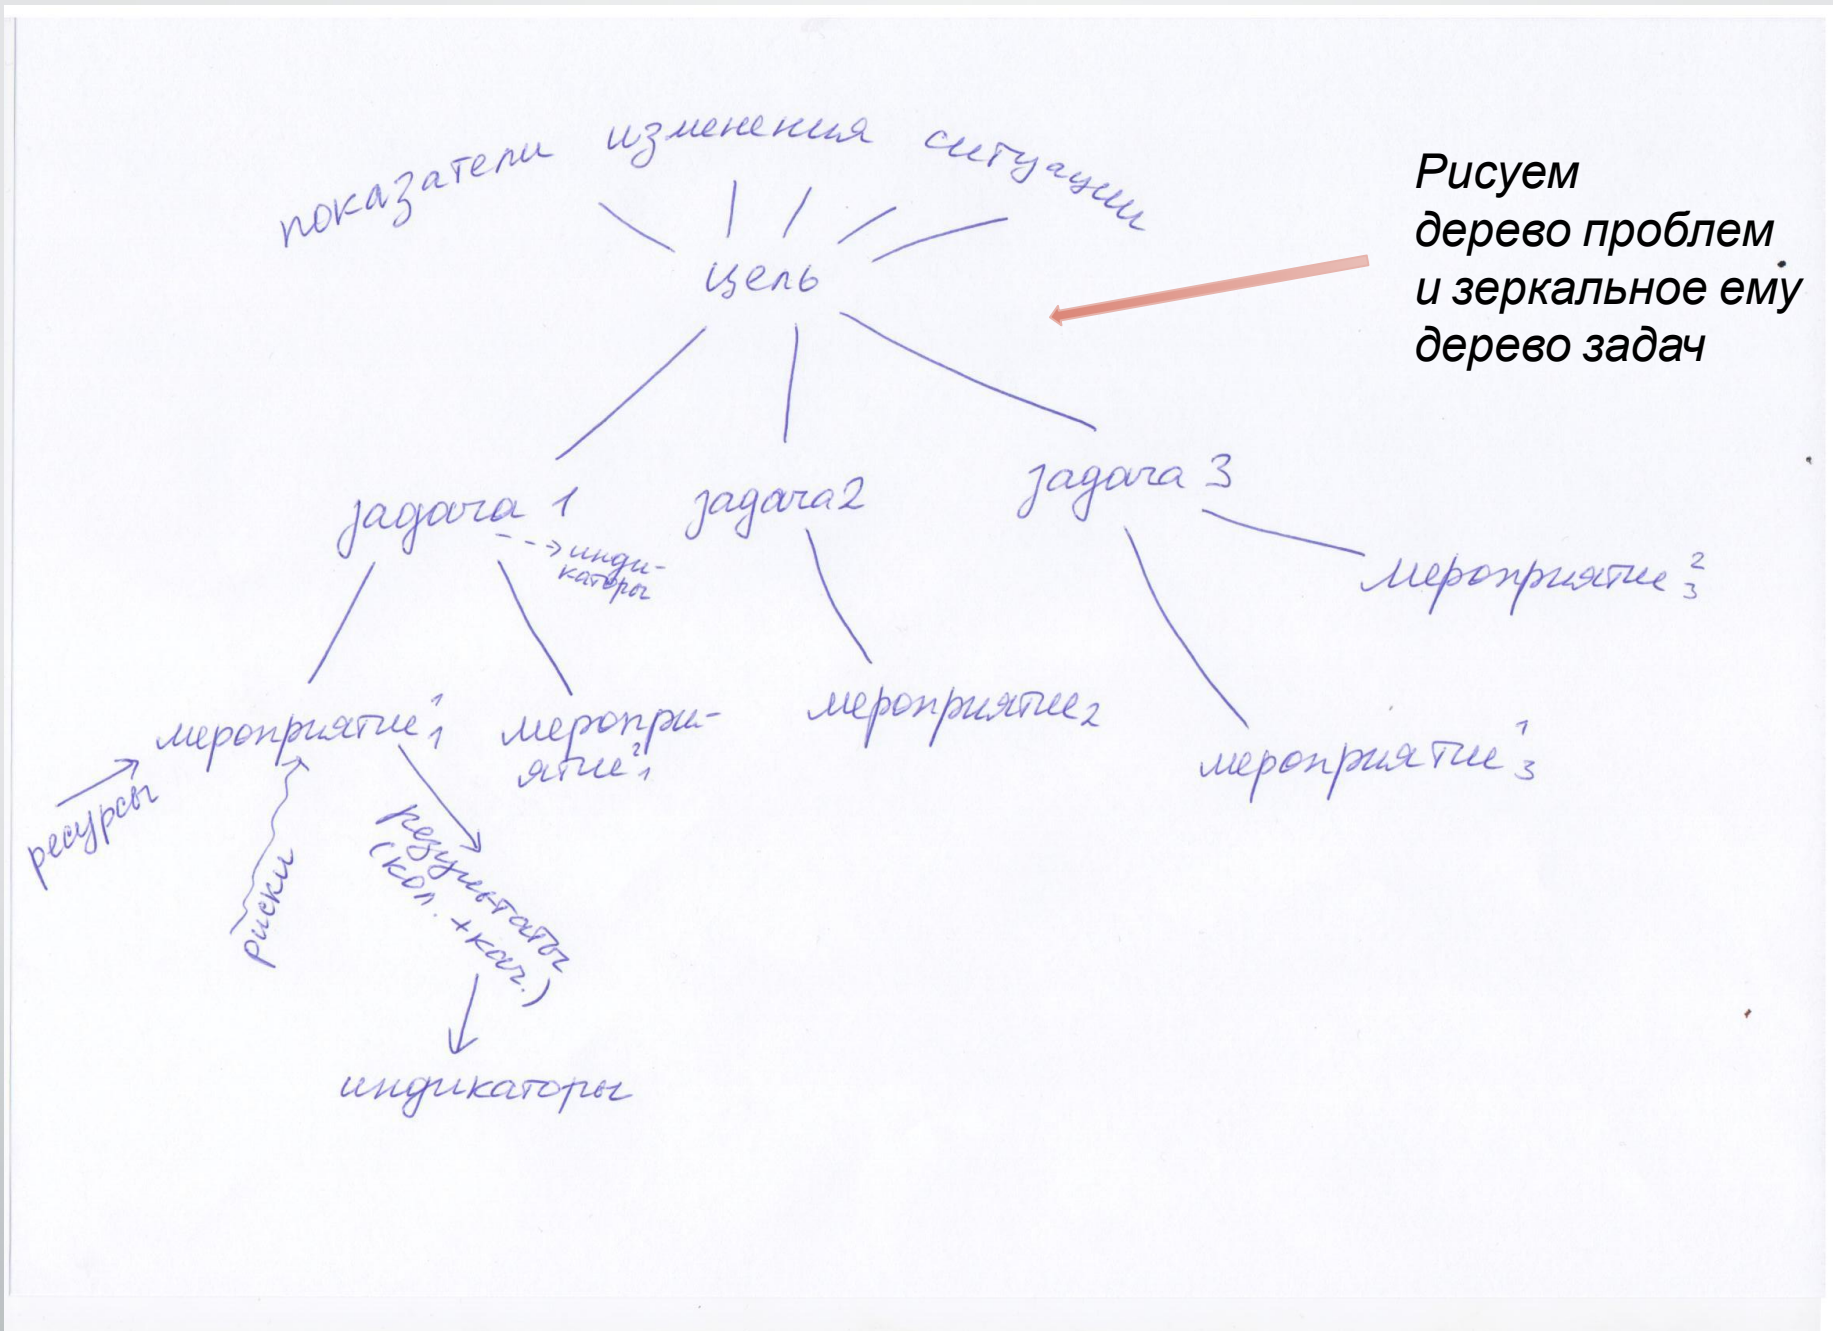 показатели изменения ситуации
Рисуем
дерево проблем
и зеркальное ему
дерево задач
цель
задача 1
задача 2
задача 3
инди-
каторы
мероприятие ¹₁
меропри-
ятие ²₁
мероприятие ₂
мероприятие ¹₃
мероприятие ²₃
ресурсы
риски
результаты
(кол. + кач.)
индикаторы